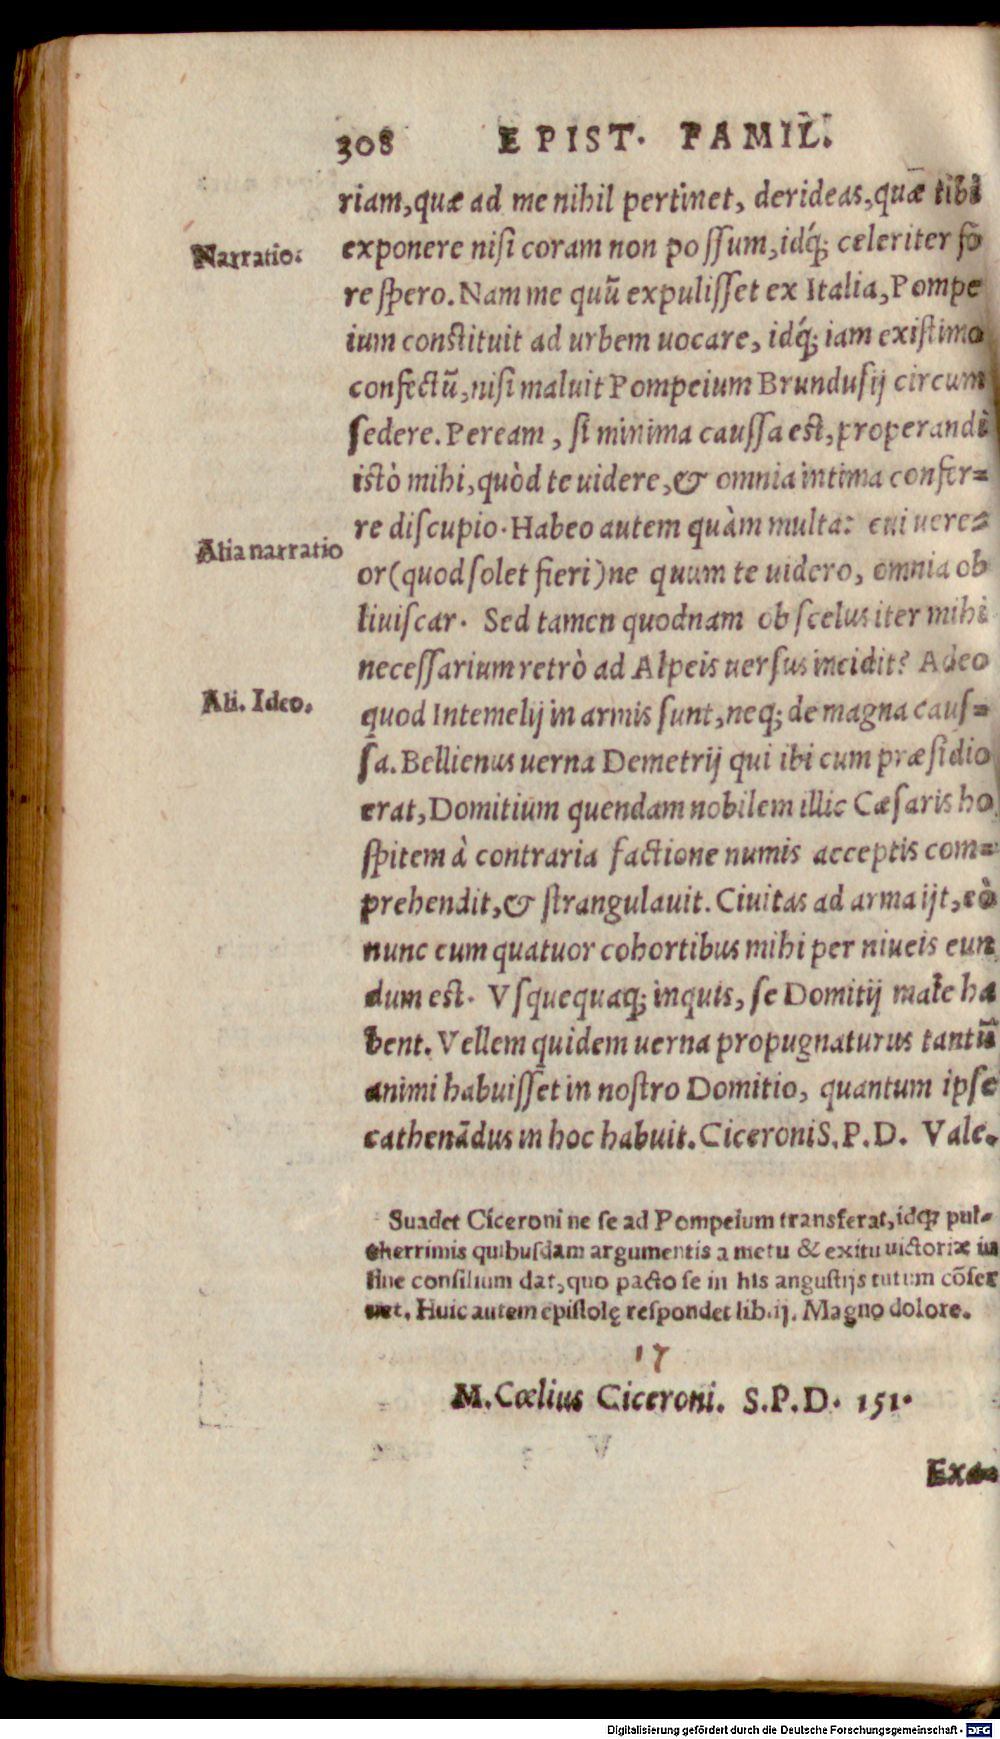 308 EPIST. FAMIL.
riam, quæ ad me nihil pertinet, derideas, quæ tibi
Narratio.
exponere nisi coram non possum, idq́; celeriter fo
re spero. Nam me quū expulisset ex Italia, Pompe
ium constituit ad urbem uocare, idq́; iam existimo
confectū, nisi maluit Pompeium Brundusij circum
sedere. Peream, si minima caussa est, properandi
istò mihi, quòd te uidere, & omnia intima confer-
re discupio. Habeo autem quàm multa: cui uere-
Alia narratio
or (quod solet fieri) ne quum te uidero, omnia ob
liuiscar. Sed tamen quodnam ob scelus iter mihi
necessarium retrò ad Alpeis uersus incidit? Adeo
Ali. Ideo.
quod Intemelij in armis sunt, neq; de magna caus-
sa. Bellienus uerna Demetrij qui ibi cum præsidio
erat, Domitium quendam nobilem illic Cæsaris ho
spitem à contraria factione numis acceptis com-
prehendit, & strangulauit. Ciuitas ad arma ijt, eò
nunc cum quatuor cohortibus mihi per niueis eun
dum est. Vsquequaq; inquis, se Domitij male ha
bent. Vellem quidem uerna propugnaturus tantū
animi habuisset in nostro Domitio, quantum ipse
cathenādus in hoc habuit. Ciceroni S.P.D. Vale.
Suadet Ciceroni ne se ad Pompeium transferat, idq; pul-
cherrimis quibusdam argumentis a metu & exitu uictoriæ in
fine consilium dat, quo pacto se in his angustijs tutum cōser
uet. Huic autem epistolę respondet lib. ij. Magno dolore.
17
M. Cœlius Ciceroni. S.P.D. 151.
Digitalisierung gefördert durch die Deutsche Forschungsgemeinschaft - DFG